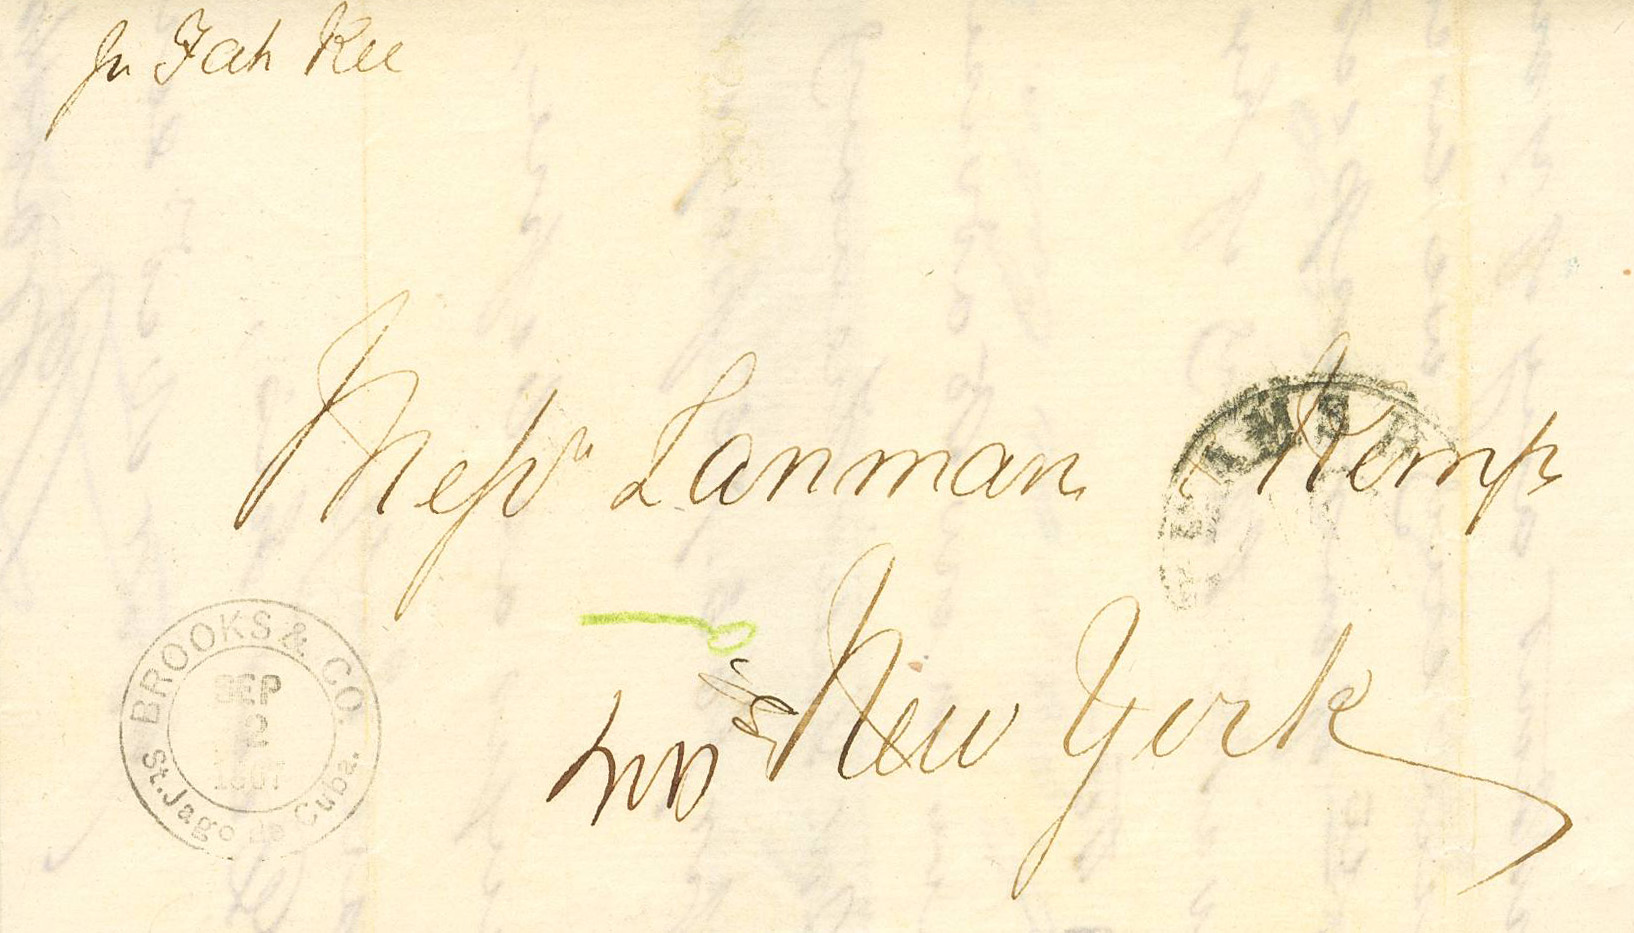 Pr Fah Kee
Messrs Lanman Kemp
New York
BROOKS & CO.
SEP
2
1867
St. Jago de Cuba.
STEAMSH